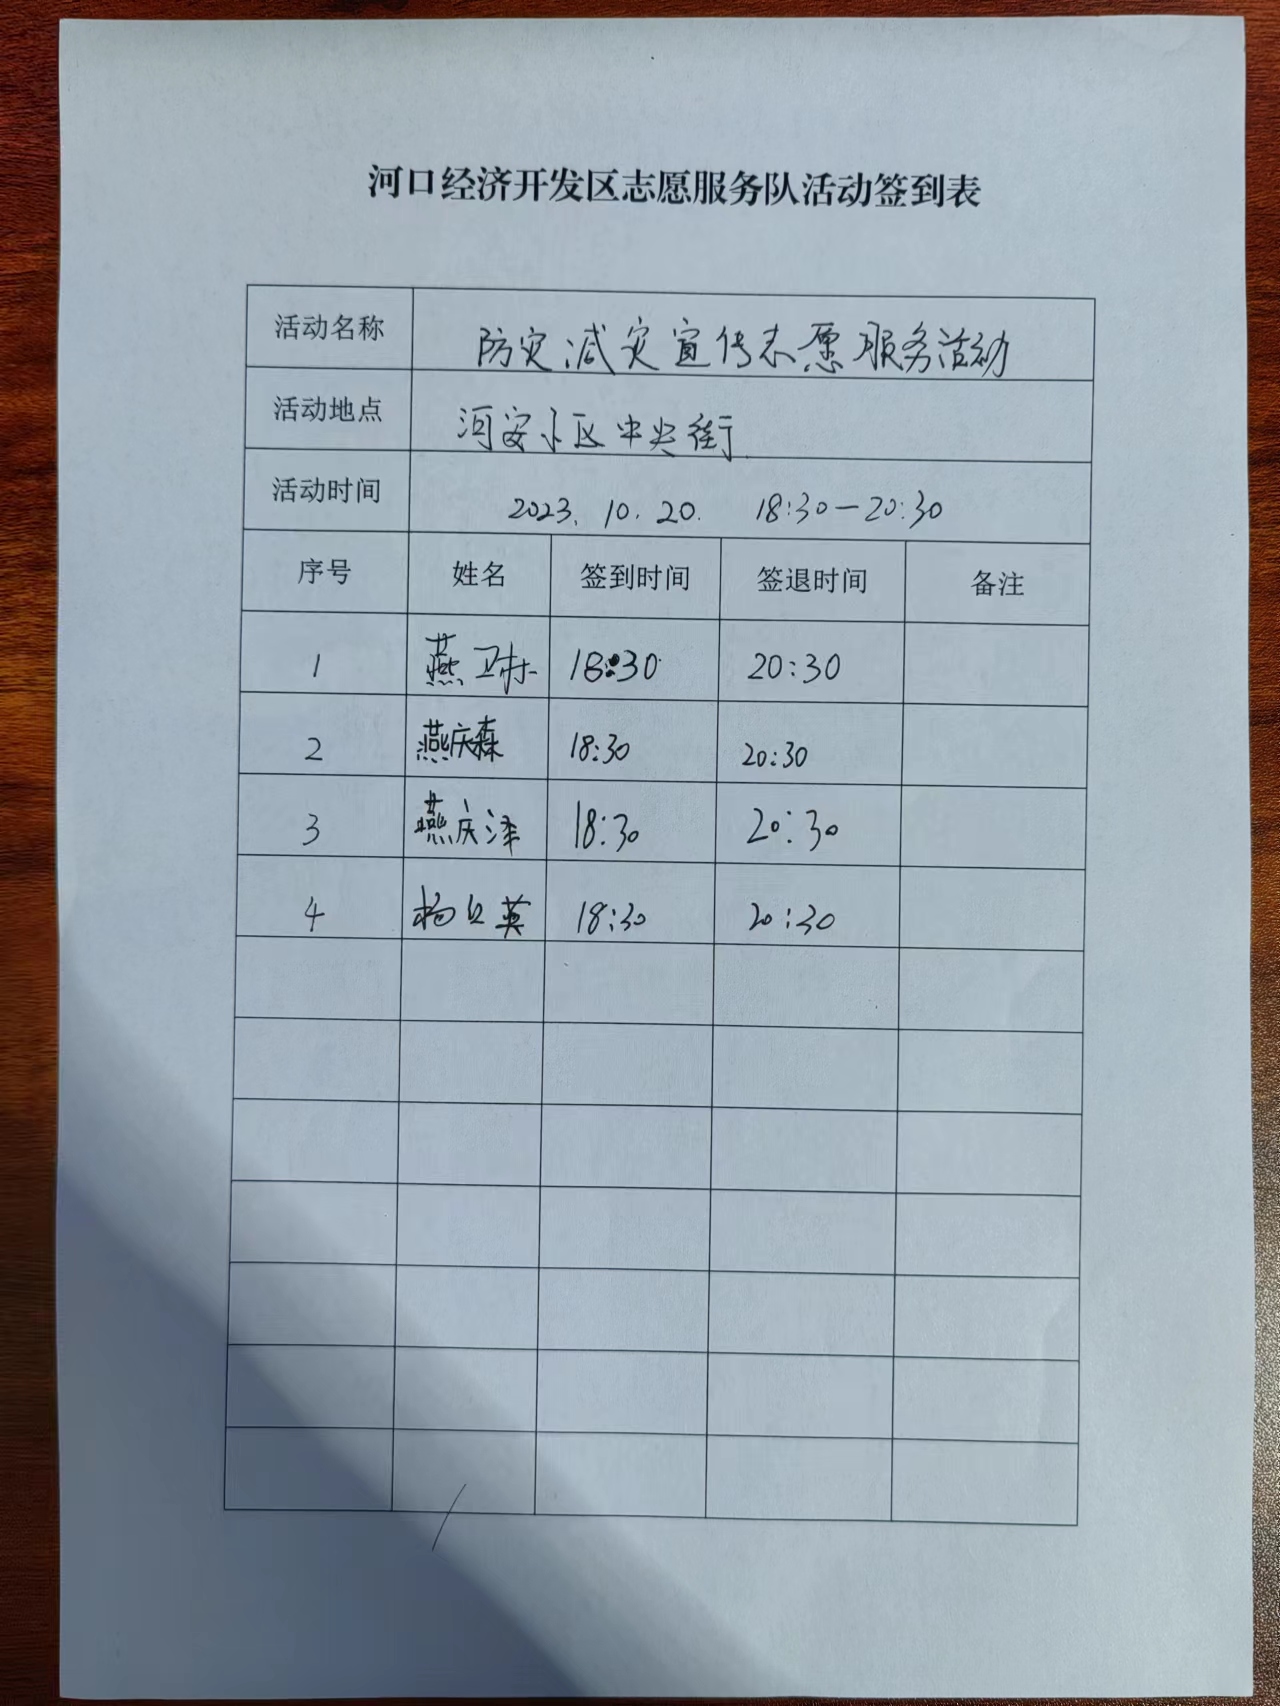 河口经济开发区志愿服务队活动签到表
活动名称 防灾减灾宣传志愿服务活动
活动地点 河安小区中央街
活动时间 2023.10.20. 18:30-20:30
序号 姓名 签到时间 签退时间 备注
1 燕卫标 18:30 20:30
2 燕庆森 18:30 20:30
3 燕庆泽 18:30 20:30
4 杨英 18:30 20:30